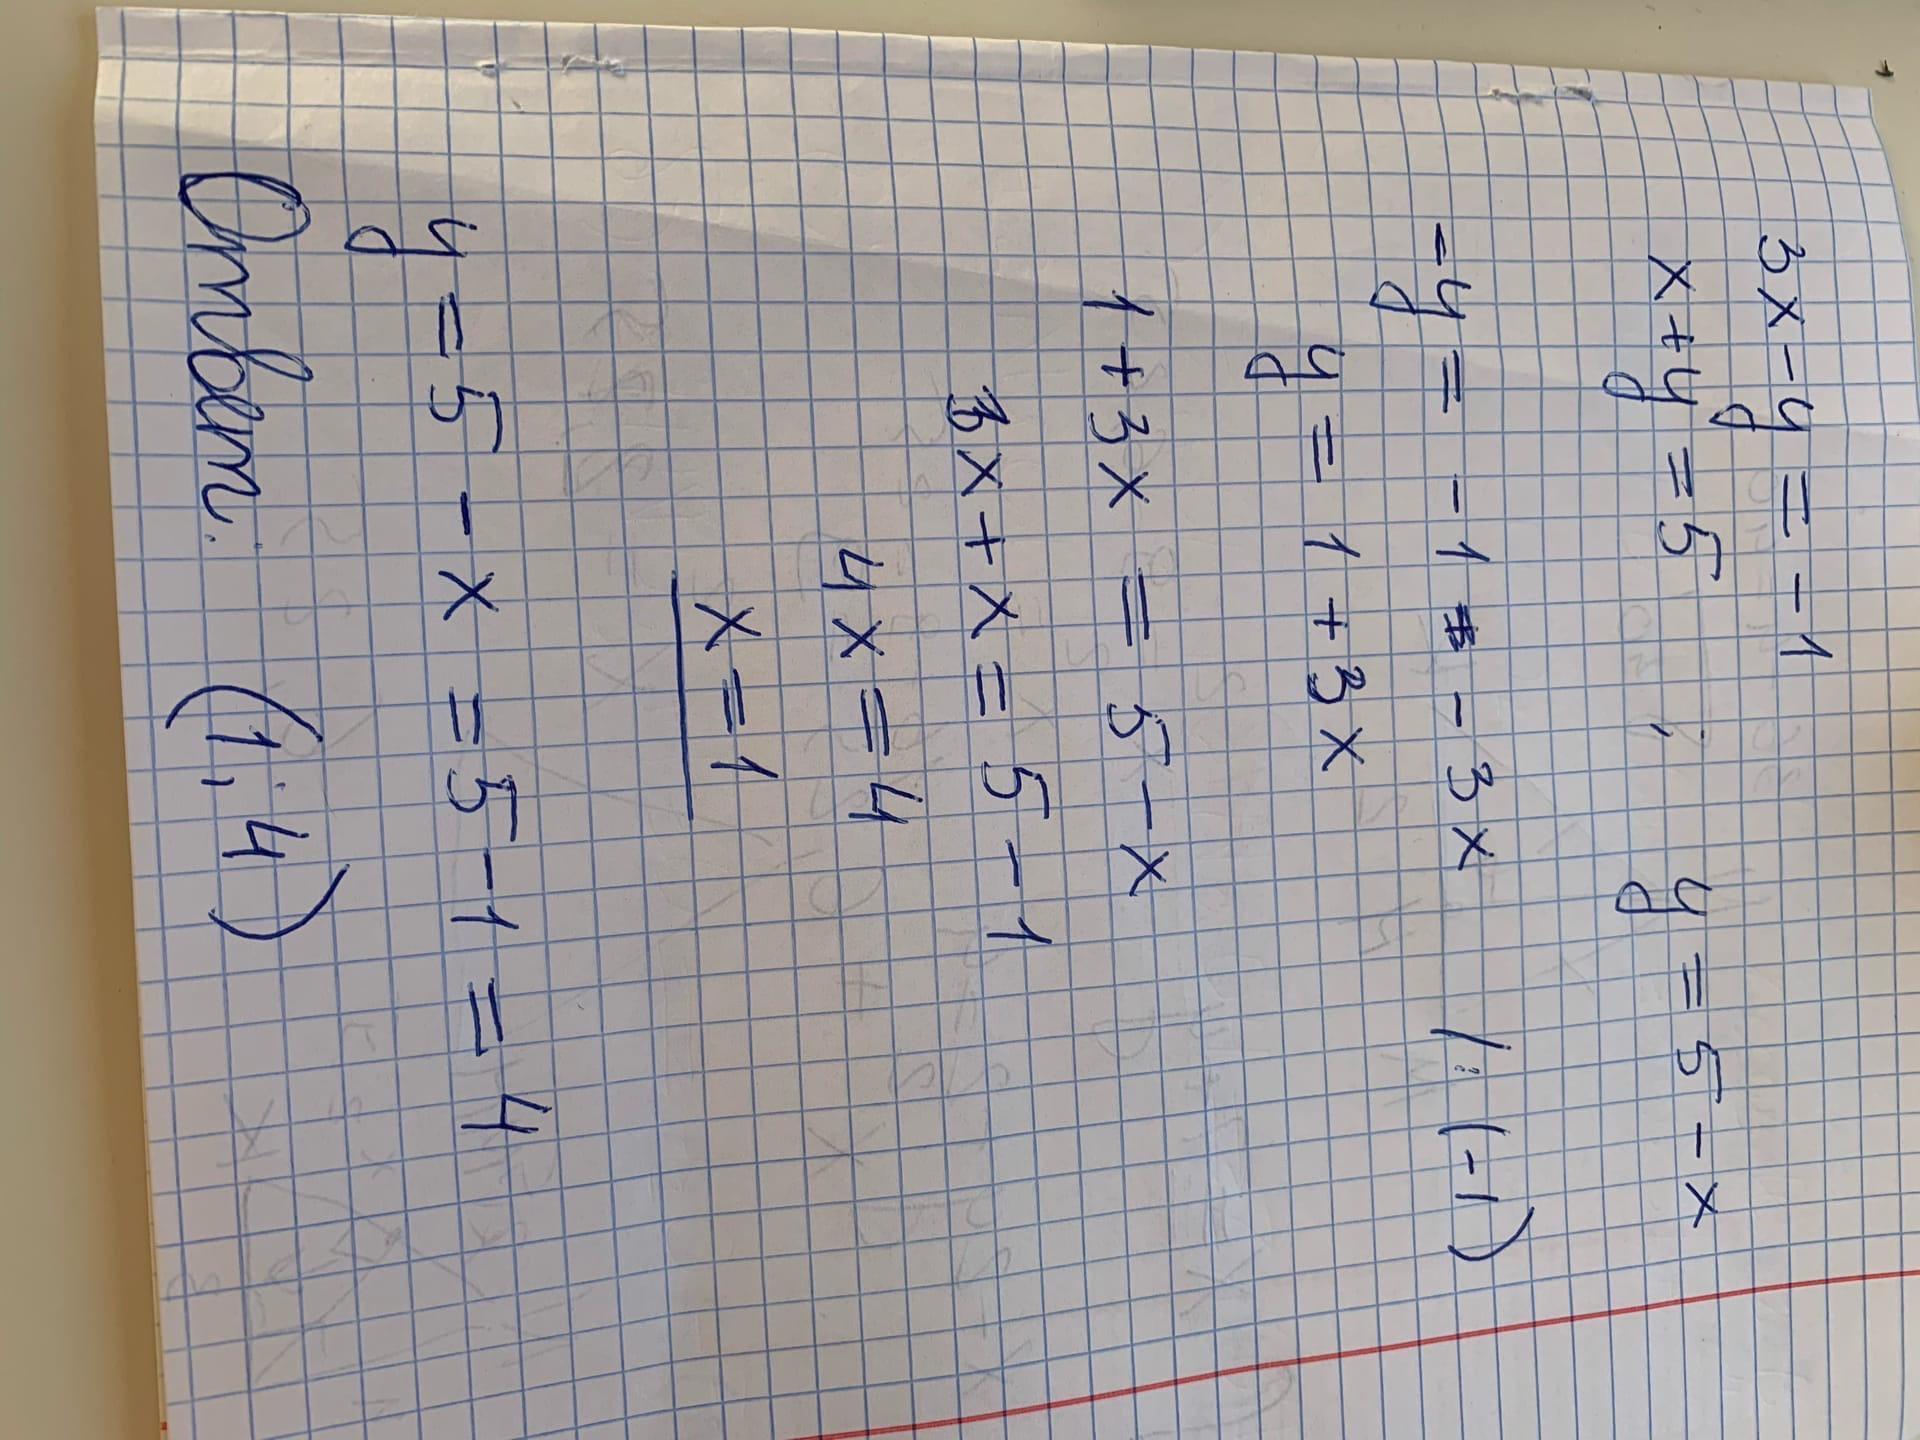 3x-y = -1
x+y = 5 ; y = 5-x
-y = -1 - 3x /: (-1)
y = 1 + 3x
1 + 3x = 5-x
3x+x = 5-1
4x = 4
x = 1
y = 5 - x = 5-1 = 4
Ответ: (1; 4)